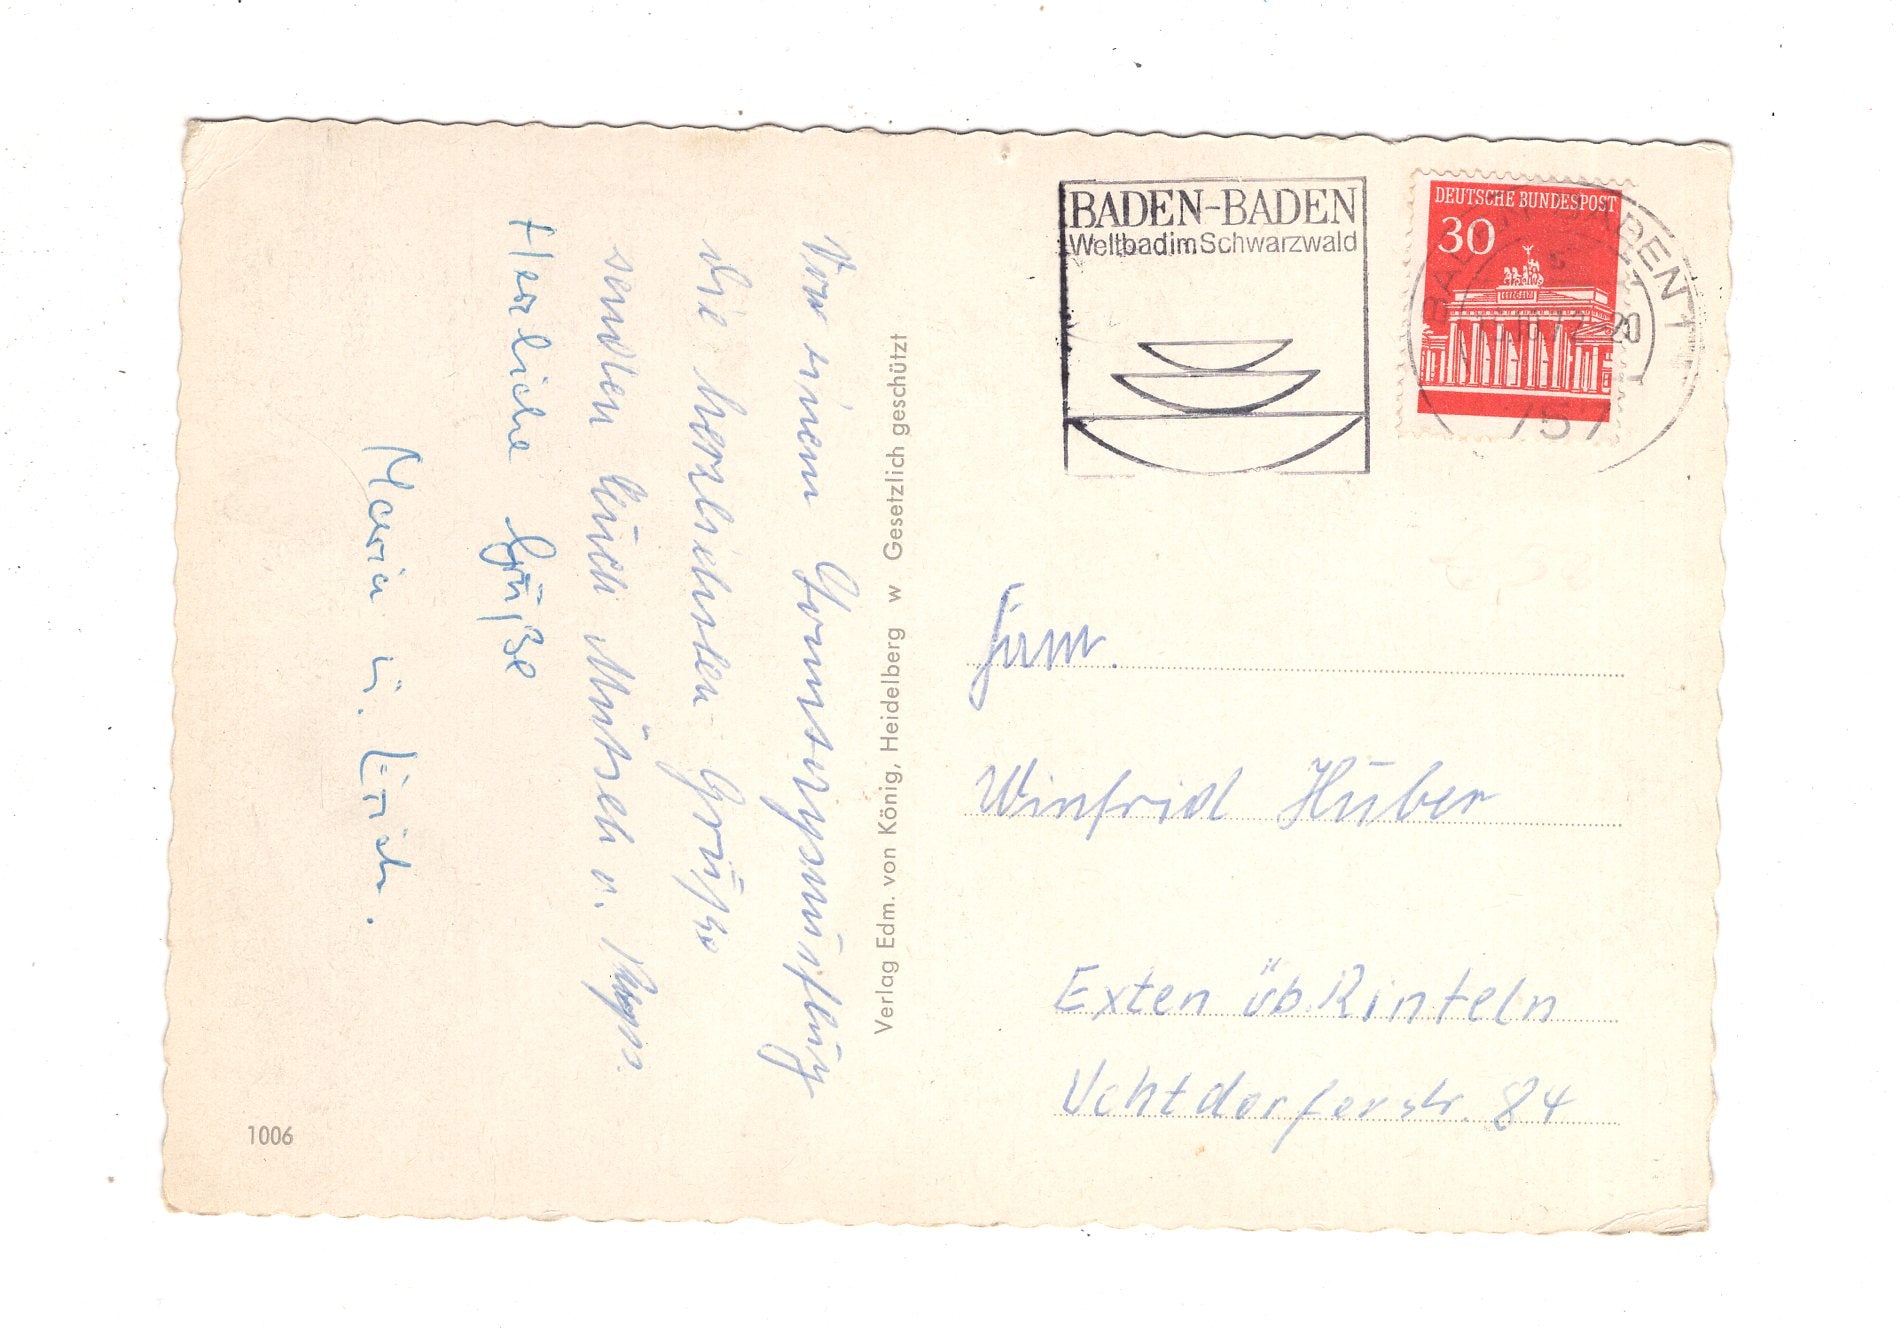 Von einem
die herzlichsten Grüße
senden Euch u. Papa.
Herzliche Grüße
Maria u. Erich.
Verlag Edm. von König, Heidelberg w Gesetzlich geschützt
1006
BADEN-BADEN
Weltbad im Schwarzwald
DEUTSCHE BUNDESPOST
30
BADEN-BADEN 1
757
Fam.
Winfrid Huber
Exten üb. Rinteln
Uchtdorferstr. 84